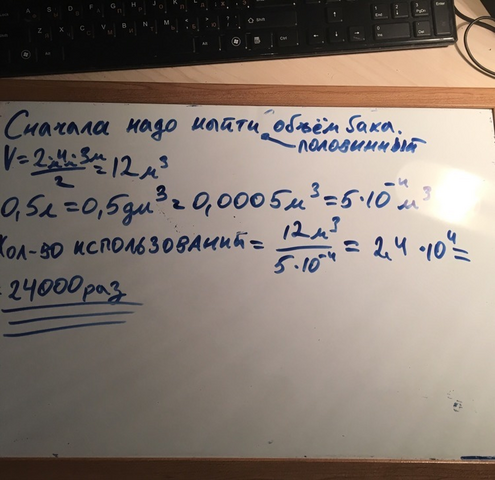 Сначала надо найти объём бака.
половинный
V = 2м·4м·3м/2 = 12 м³
0,5л = 0,5дм³ = 0,0005м³ = 5·10⁻⁴ м³
Кол-во использований = 12м³/5·10⁻⁴ = 2,4·10⁴ =
= 24000 раз